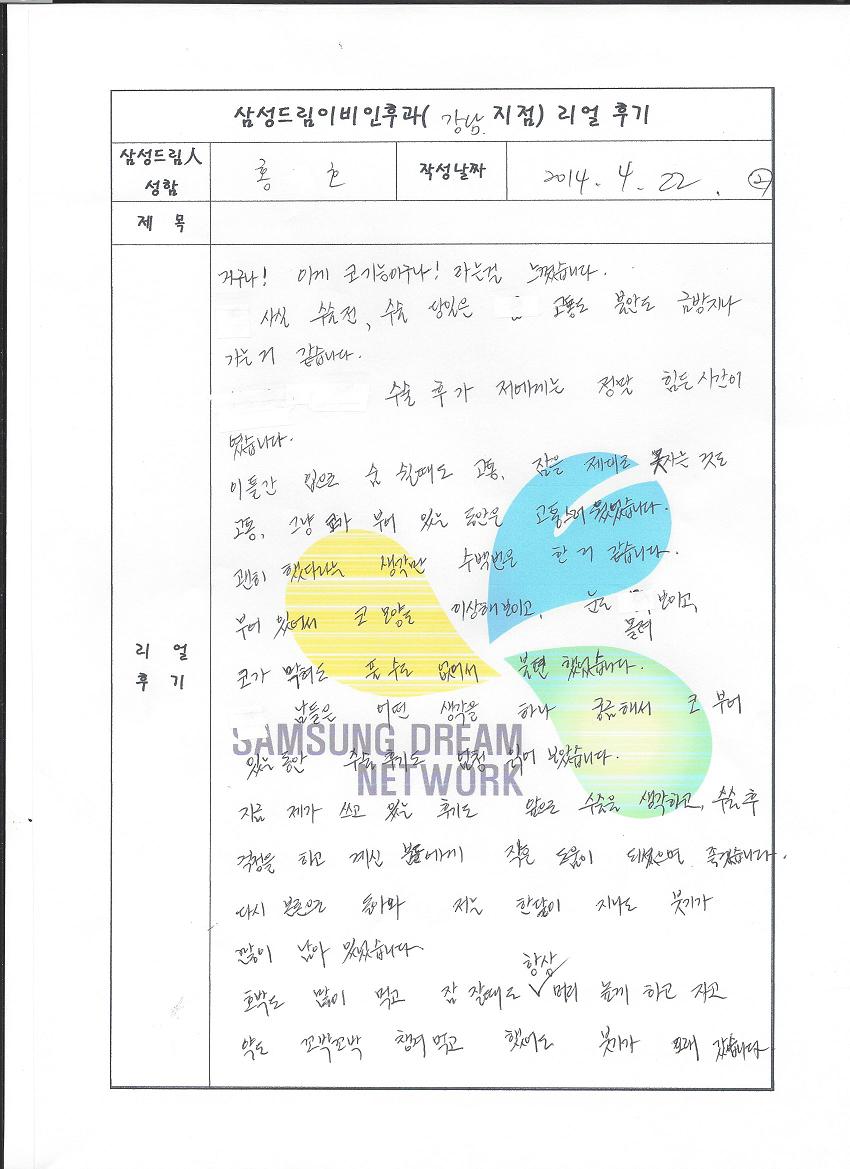 삼성드림이비인후과( 강남 지점) 리얼 후기
삼성드림人 성함
홍
작성날짜
2014. 4. 22. ②
제 목
리 얼 후 기
거구나! 이게 코기능이구나! 하는걸 느꼈습니다.
사실 수술전, 수술 당일은 고통도 불안도 금방지나
가는거 같습니다.
수술 후가 저에게는 정말 힘든시간이
였습니다.
이틀간 입으로 숨 쉴때도 고통, 잠을 제대로 못자는 것도
고통, 그냥 코가 부어 있는 동안은 고통스러웠었습니다.
괜히 했다라는 생각만 수백번은 한 거 같습니다.
부어 있어서 코 모양도 이상해보이고, 눈도 몰려 보이고,
코가 막혀도 풀 수도 없어서 불편 했었습니다.
남들은 어떤 생각을 하나 궁금해서 코 부어
있는동안 수술후기도 엄청 읽어 보았습니다.
SAMSUNG DREAM
NETWORK
지금 제가 쓰고 있는 후기도 앞으로 수술을 생각하고, 수술 후
걱정을 하고 계신 분들에게 작은 도움이 되었으면 좋겠습니다.
다시 본론으로 돌아와 저는 한달이 지나도 붓기가
많이 남아 있었습니다.
호박도 많이 먹고 잠 잘때도 항상 머리 높게 하고 자고
약도 꼬박꼬박 챙겨먹고 했어도 붓기가 오래 갔습니다